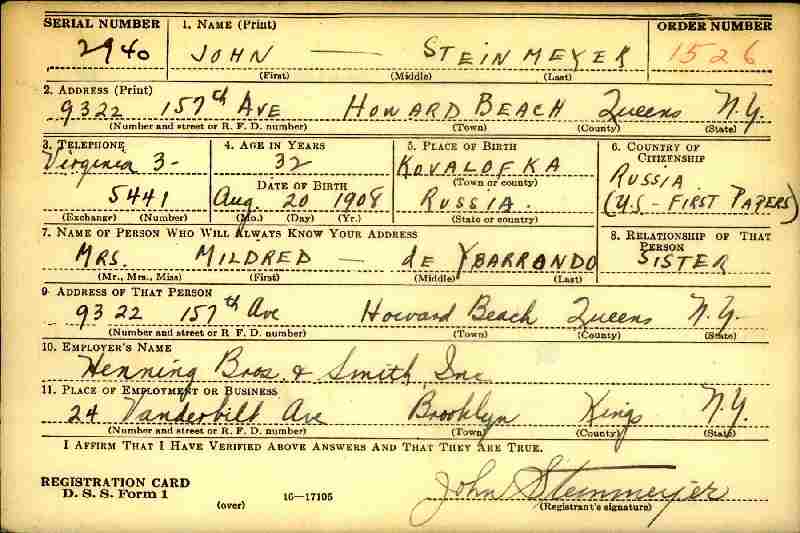 SERIAL NUMBER 1. NAME (Print) ORDER NUMBER
2940 JOHN — STEINMEYER 1526
(First) (Middle) (Last)
2. ADDRESS (Print)
9322 157th AVE HOWARD BEACH Queens N.Y.
(Number and street or R. F. D. number) (Town) (County) (State)
3. TELEPHONE 4. AGE IN YEARS 5. PLACE OF BIRTH 6. COUNTRY OF CITIZENSHIP
Virginia 3- 32 KOVALOFKA RUSSIA
DATE OF BIRTH (Town or county)
5441 Aug. 20 1908 RUSSIA. (U.S - FIRST PAPERS)
(Exchange) (Number) (Mo.) (Day) (Yr.) (State or country)
7. NAME OF PERSON WHO WILL ALWAYS KNOW YOUR ADDRESS 8. RELATIONSHIP OF THAT PERSON
MRS. MILDRED — de YBARRONDO SISTER
(Mr., Mrs., Miss) (First) (Middle) (Last)
9. ADDRESS OF THAT PERSON
9322 157th Ave Howard Beach Queens N.Y.
(Number and street or R. F. D. number) (Town) (County) (State)
10. EMPLOYER'S NAME
Henning Bros. & Smith, Inc
11. PLACE OF EMPLOYMENT OR BUSINESS
24 Vanderbilt Ave Brooklyn Kings N.Y.
(Number and street or R. F. D. number) (Town) (County) (State)
I AFFIRM THAT I HAVE VERIFIED ABOVE ANSWERS AND THAT THEY ARE TRUE.
REGISTRATION CARD
D. S. S. Form 1
(over) 16—17105
John Steinmeyer
(Registrant's signature)